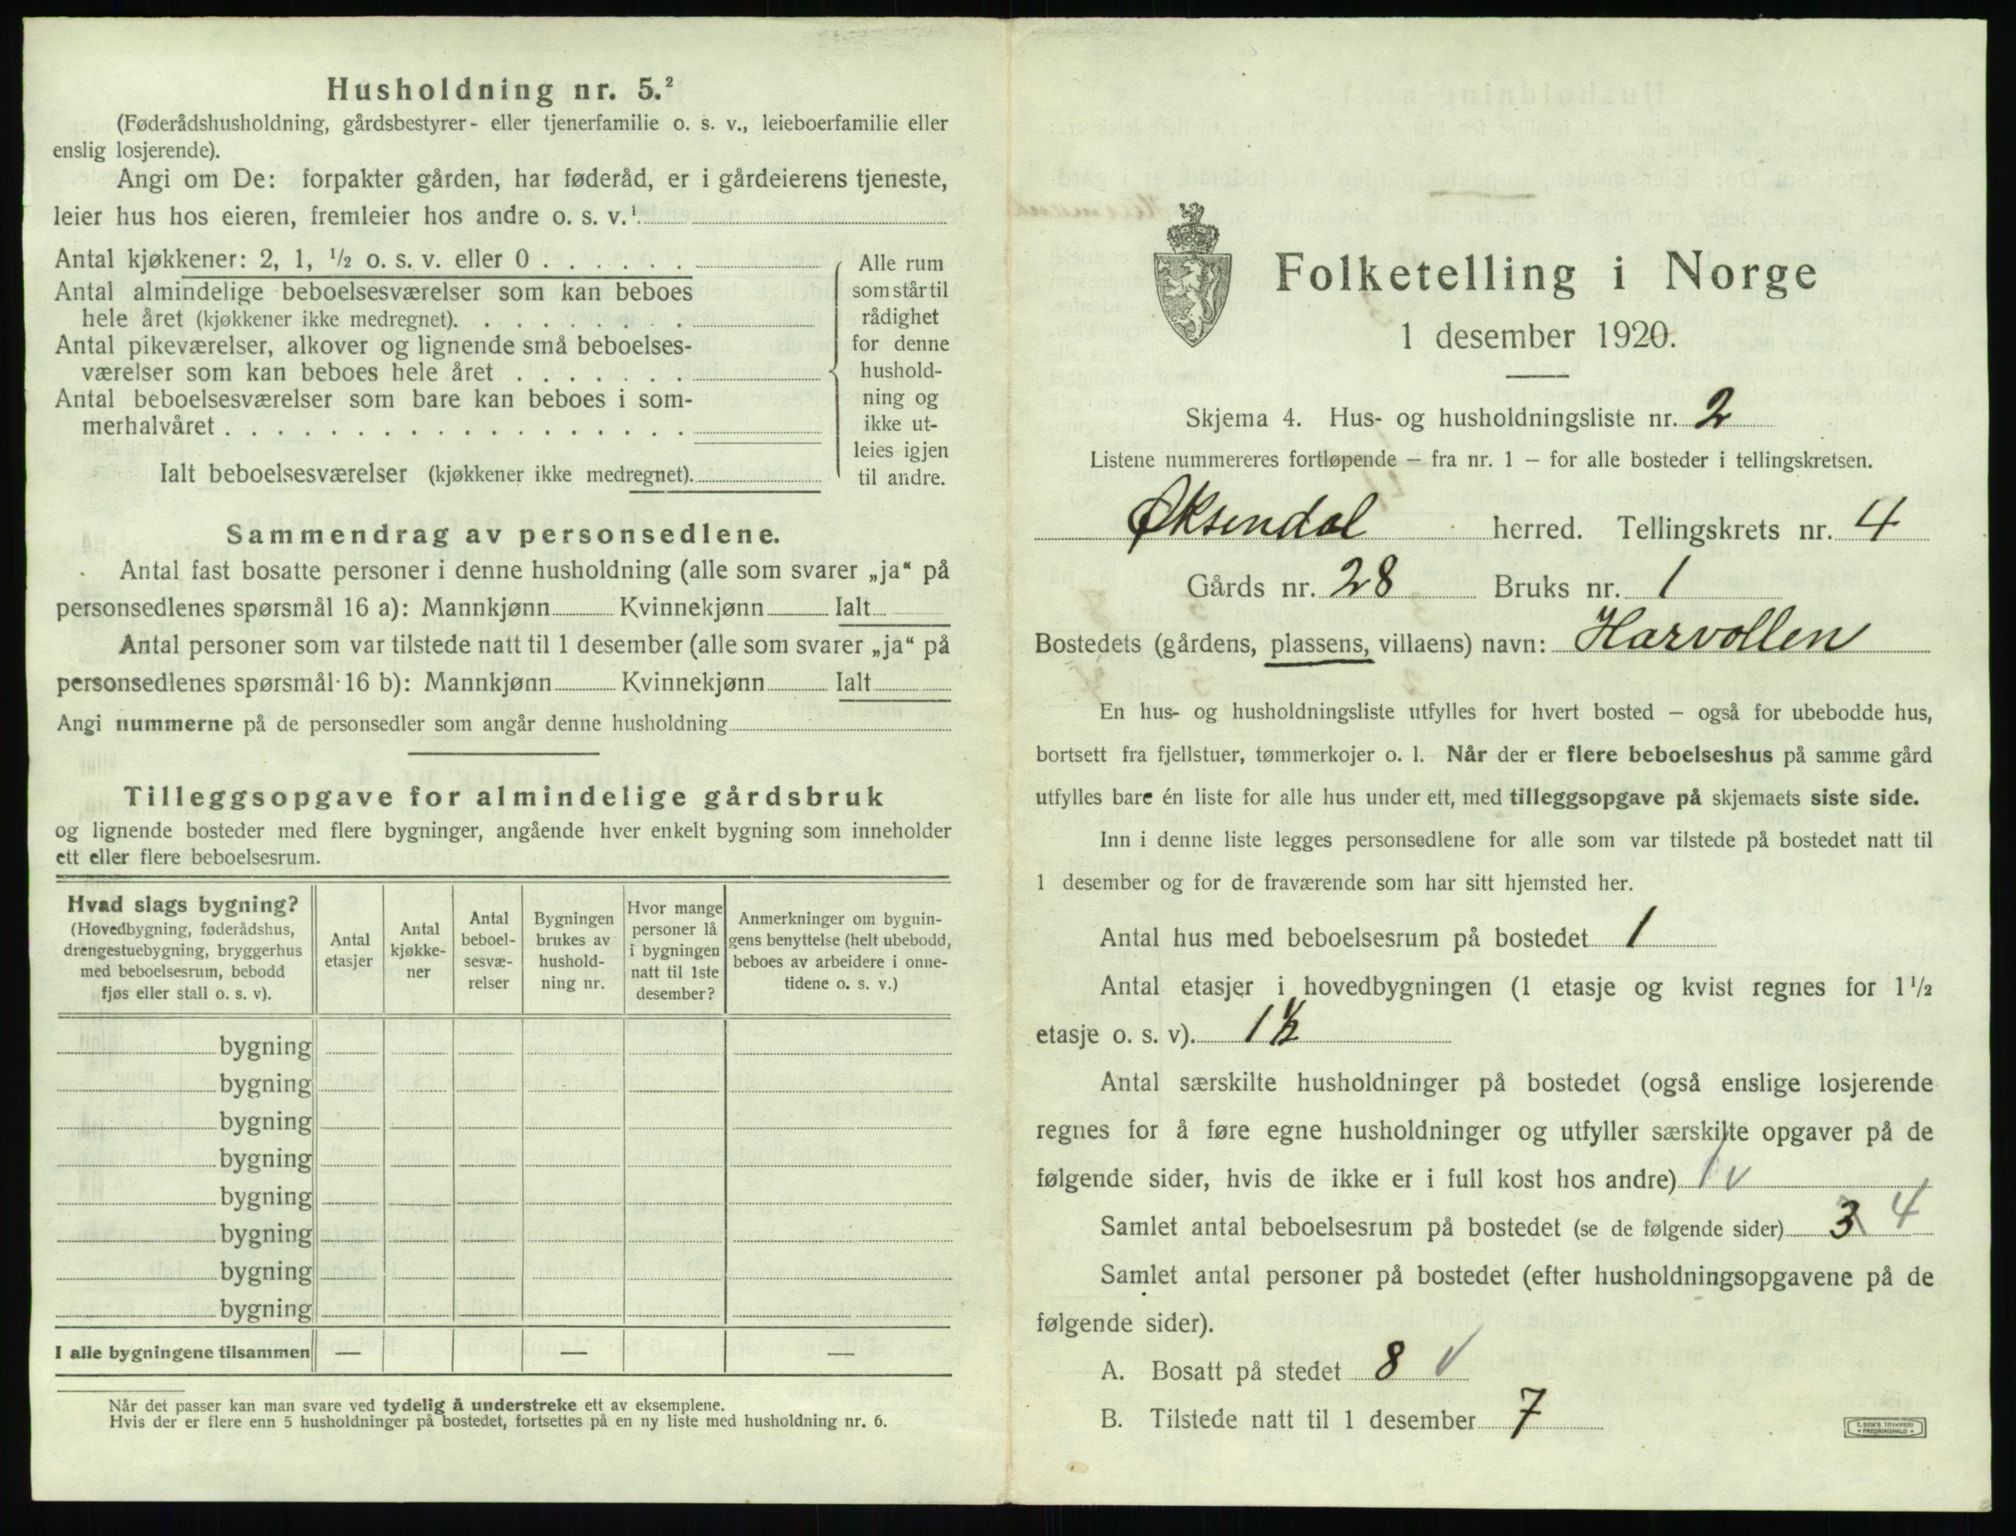 Husholdning nr. 5.²
(Føderådshusholdning, gårdsbestyrer- eller tjenerfamilie o. s. v., leieboerfamilie eller
enslig losjerende).
Angi om De: forpakter gården, har føderåd, er i gårdeierens tjeneste,
leier hus hos eieren, fremleier hos andre o. s. v.¹
Antal kjøkkener: 2, 1, ½ o. s. v. eller 0 . . . . . .
Antal almindelige beboelsesværelser som kan beboes
hele året (kjøkkener ikke medregnet). . . . . . . . .
Antal pikeværelser, alkover og lignende små beboelses-
værelser som kan beboes hele året . . . . . . .
Antal beboelsesværelser som bare kan beboes i som-
merhalvåret . . . . . . . . . . . . . . . . . .
Ialt beboelsesværelser (kjøkkener ikke medregnet).
Alle rum
som står til
rådighet
for denne
hushold-
ning og
ikke ut-
leies igjen
til andre.
Sammendrag av personsedlene.
Antal fast bosatte personer i denne husholdning (alle som svarer „ja“ på
personsedlenes spørsmål 16 a): Mannkjønn Kvinnekjønn Ialt
Antal personer som var tilstede natt til 1 desember (alle som svarer „ja“ på
personsedlenes spørsmål 16 b): Mannkjønn Kvinnekjønn Ialt
Angi nummerne på de personsedler som angår denne husholdning
Tilleggsopgave for almindelige gårdsbruk
og lignende bosteder med flere bygninger, angående hver enkelt bygning som inneholder
ett eller flere beboelsesrum.
Hvad slags bygning?
(Hovedbygning, føderådshus,
drengestuebygning, bryggerhus
med beboelsesrum, bebodd
fjøs eller stall o. s. v).
Antal
etasjer
Antal
kjøkke-
ner
Antal
beboel-
sesvæ-
relser
Bygningen
brukes av
hushold-
ning nr.
Hvor mange
personer lå
i bygningen
natt til 1ste
desember?
Anmerkninger om bygnin-
gens benyttelse (helt ubebodd,
beboes av arbeidere i onne-
tidene o. s. v.)
bygning
bygning
bygning
bygning
bygning
bygning
bygning
bygning
I alle bygningene tilsammen — — —
Når det passer kan man svare ved tydelig å understreke ett av eksemplene.
Hvis der er flere enn 5 husholdninger på bostedet, fortsettes på en ny liste med husholdning nr. 6.
Folketelling i Norge
1 desember 1920.
Skjema 4. Hus- og husholdningsliste nr. 2
Listene nummereres fortløpende – fra nr. 1 – for alle bosteder i tellingskretsen.
Øksendal herred. Tellingskrets nr. 4
Gårds nr. 28 Bruks nr. 1
Bostedets (gårdens, plassens, villaens) navn: Harvollen
En hus- og husholdningsliste utfylles for hvert bosted – også for ubebodde hus,
bortsett fra fjellstuer, tømmerkojer o. l. Når der er flere beboelseshus på samme gård
utfylles bare én liste for alle hus under ett, med tilleggsopgave på skjemaets siste side.
Inn i denne liste legges personsedlene for alle som var tilstede på bostedet natt til
1 desember og for de fraværende som har sitt hjemsted her.
Antal hus med beboelsesrum på bostedet 1
Antal etasjer i hovedbygningen (1 etasje og kvist regnes for 1½
etasje o. s. v). 1½
Antal særskilte husholdninger på bostedet (også enslige losjerende
regnes for å føre egne husholdninger og utfyller særskilte opgaver på de
følgende sider, hvis de ikke er i full kost hos andre) 1 v
Samlet antal beboelsesrum på bostedet (se de følgende sider) 3 4
Samlet antal personer på bostedet (efter husholdningsopgavene på de
følgende sider).
A. Bosatt på stedet 8 v
B. Tilstede natt til 1 desember 7
E. SEM'S TRYKKERI
FREDRIKSHALD